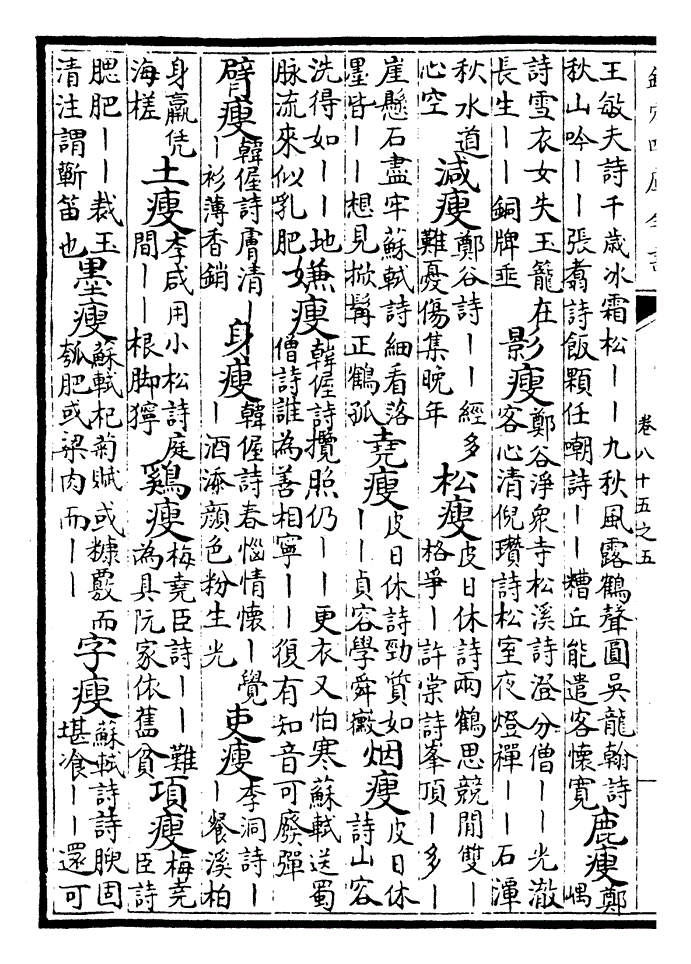 欽定四庫全書 卷八十五之五
王敏夫詩千歲冰霜松丨丨九秋風露鶴聲圓吳龍翰詩秋山吟丨丨張翥詩飯顆任嘲詩丨丨糟丘能遣客懷寬鹿瘦鄭嵎
詩雪衣女失玉籠在長生丨丨銅牌垂影瘦鄭谷淨衆寺松溪詩澄分僧丨丨光澈客心清倪瓚詩松室夜燈禪丨丨石潭
秋水道心空減瘦鄭谷詩丨丨經多難憂傷集晚年松瘦皮日休詩兩鶴思競閒雙丨格爭丨許棠詩峯頂丨多丨
崖懸石盡牢蘇軾詩細看落墨皆丨丨想見掀髯正鶴孤堯瘦皮日休詩勁質如丨丨貞容學舜黴烟瘦皮日休詩山容
洗得如丨丨地脉流來似乳肥嫌瘦韓偓詩攬照仍丨丨更衣又怕寒蘇軾送蜀僧詩誰為善相寧丨丨復有知音可廢彈
臂瘦韓偓詩膚清丨丨衫薄香銷身瘦韓偓詩春惱情懷丨覺丨酒添顏色粉生光吏瘦李洞詩丨丨餐溪柏
身羸凭海槎土瘦李咸用小松詩庭間丨丨根脚獰鷄瘦梅堯臣詩丨丨難為具阮家依舊貧項瘦梅堯臣詩
腮肥丨丨裁玉清注謂蘄笛也墨瘦蘇軾杞菊賦或糠覈而瓠肥或粱肉而丨丨字瘦蘇軾詩詩腴固堪飡丨丨還可